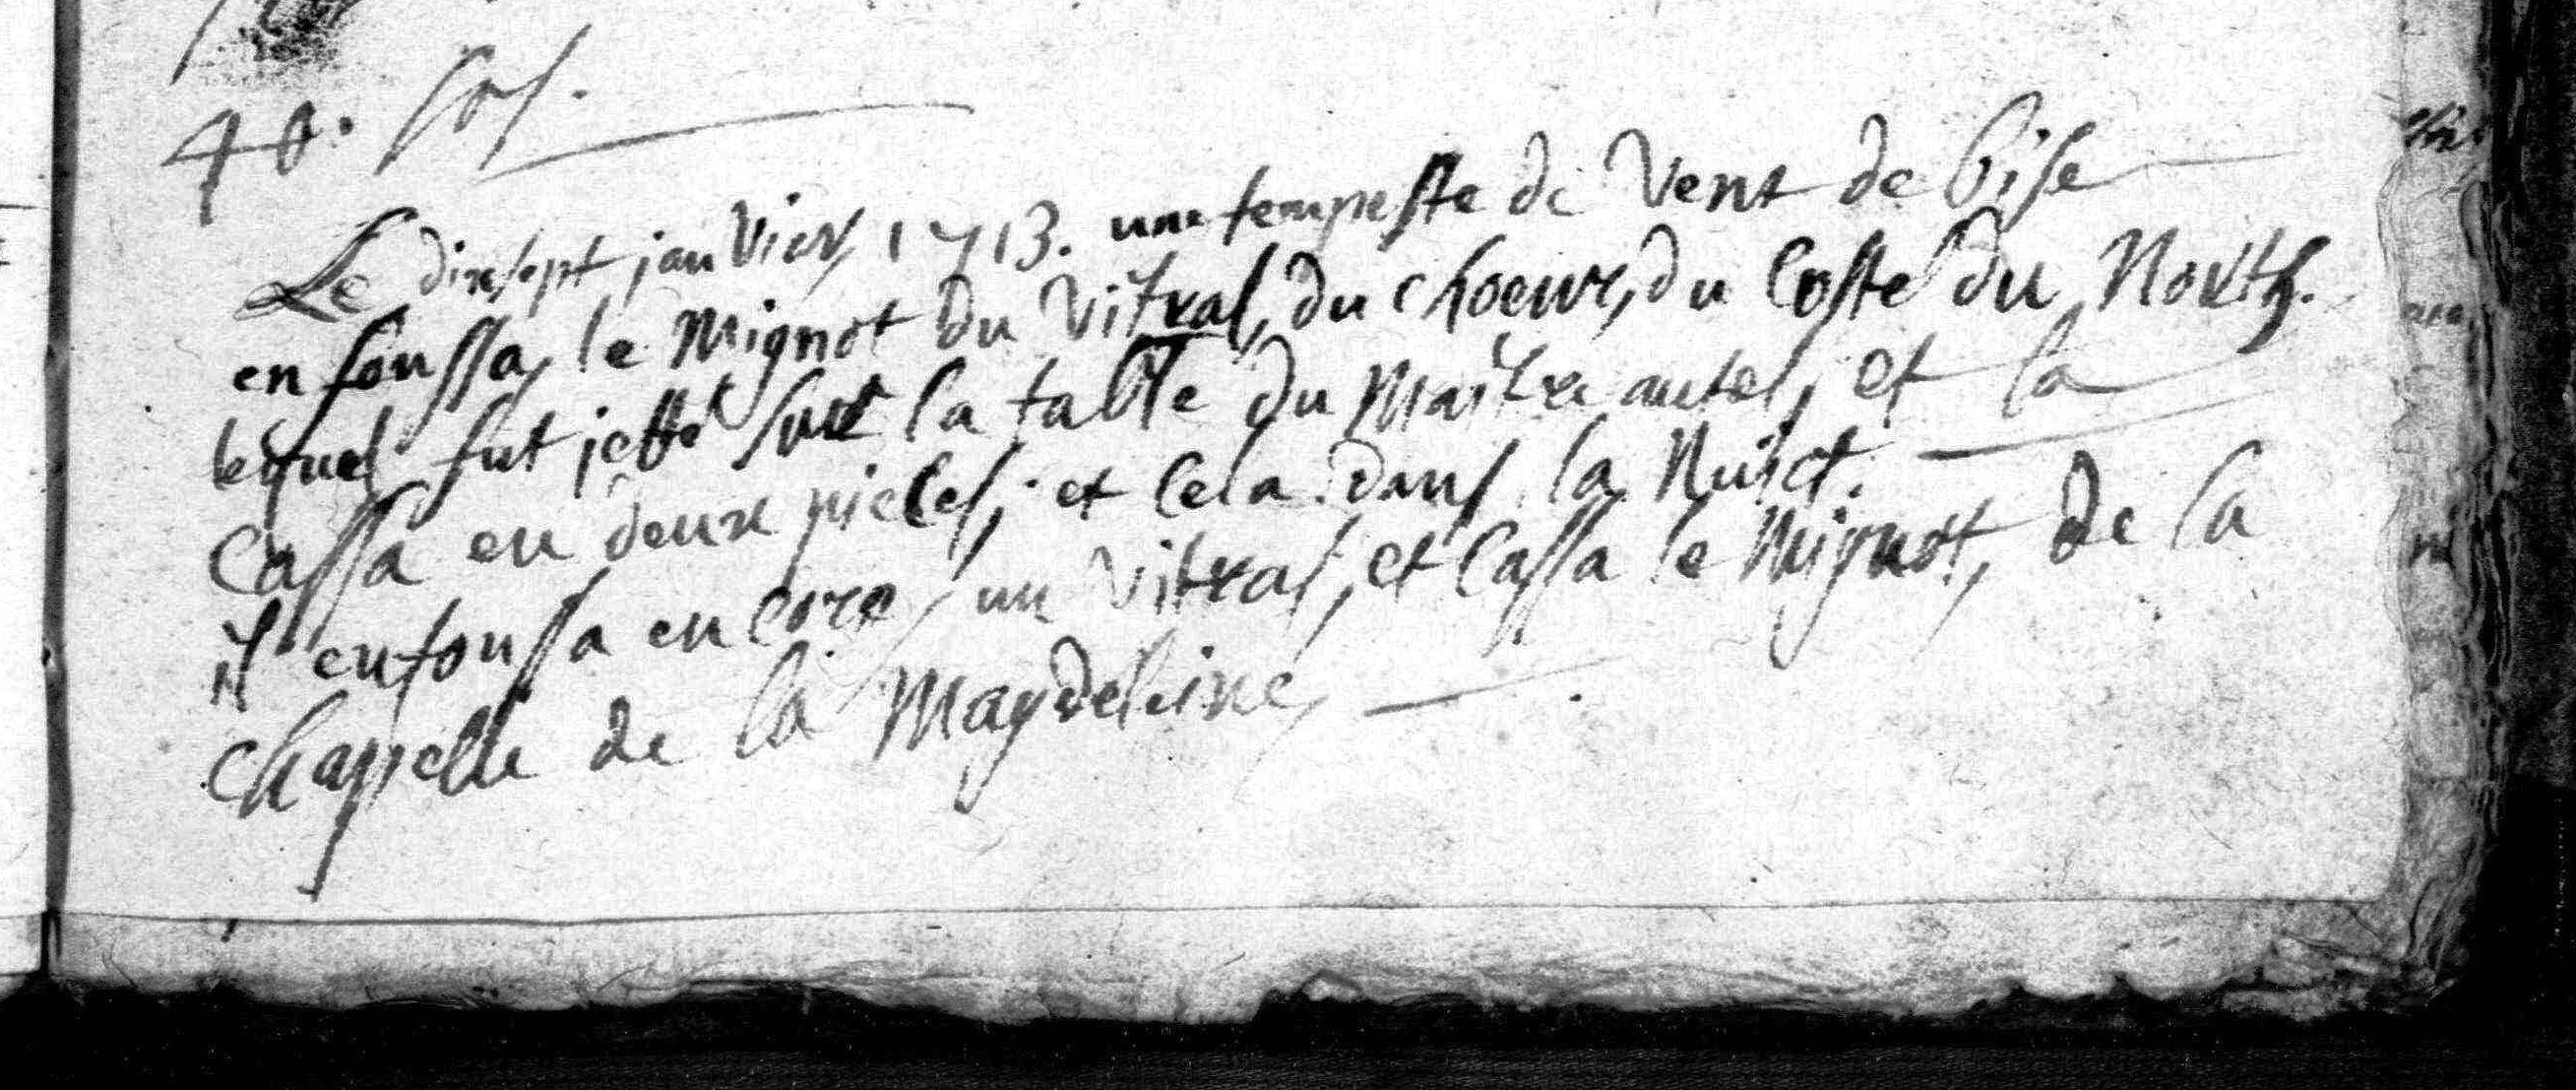 40. sols.
Le dixsept janvier 1713. une tempeste de vent de bise
enfonssa le mignot du vitral, du choeur, du costé du North.
lequel fut jetté sur la table du maitre autel, et la
cassa en deux pieces, et cela dans la nuict.
il enfonssa encore un vitral, et cassa le mignot, de la
chappelle de la Magdeleine